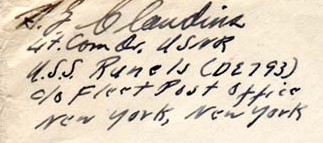 J. Claudius
Lt. Comdr. USNR
U.S.S. Runels (DE793)
c/o Fleet Post Office
New York, New York